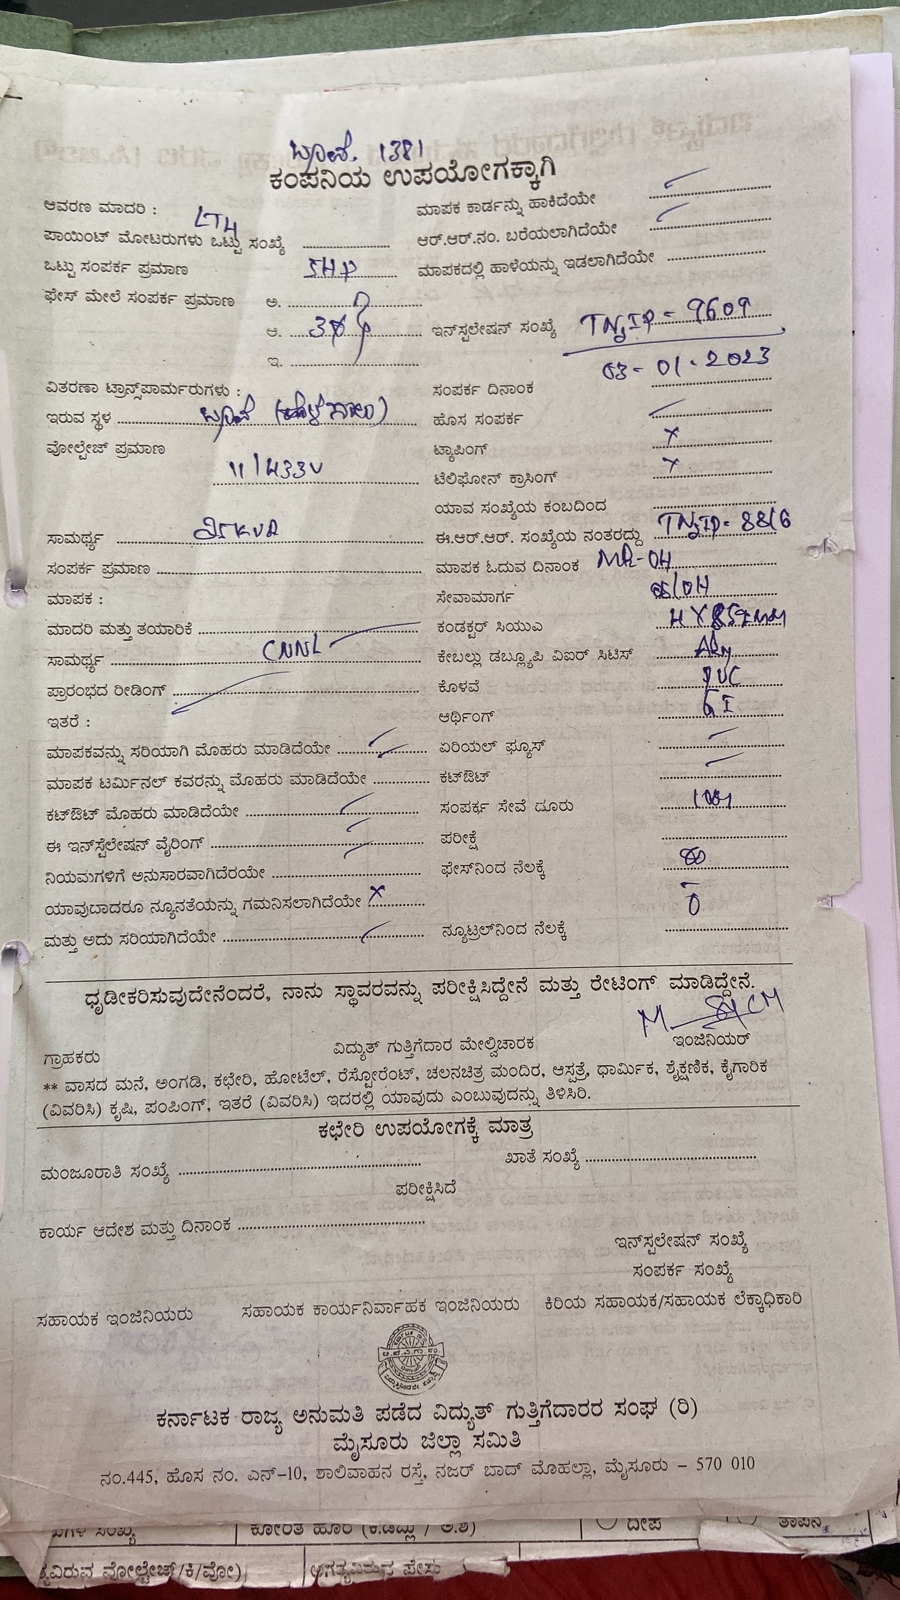 ಬ್ಯಾಂಕ್. 1381
ಕಂಪನಿಯ ಉಪಯೋಗಕ್ಕಾಗಿ
ಆವರಣ ಮಾದರಿ : LT4
ಮಾಪಕ ಕಾರ್ಡನ್ನು ಹಾಕಿದೆಯೇ ✓
ಪಾಯಿಂಟ್ ಮೋಟರುಗಳು ಒಟ್ಟು ಸಂಖ್ಯೆ
ಆರ್.ಆರ್.ನಂ. ಬರೆಯಲಾಗಿದೆಯೇ ✓
ಒಟ್ಟು ಸಂಪರ್ಕ ಪ್ರಮಾಣ 5HP
ಮಾಪಕದಲ್ಲಿ ಹಾಳೆಯನ್ನು ಇಡಲಾಗಿದೆಯೇ
ಫೇಸ್ ಮೇಲೆ ಸಂಪರ್ಕ ಪ್ರಮಾಣ ಅ.
ಆ.
ಇನ್‌ಸ್ಟಲೇಷನ್ ಸಂಖ್ಯೆ TNJIP = 9609
ಇ.
03-01-2023
ವಿತರಣಾ ಟ್ರಾನ್ಸ್‌ಪಾರ್ಮರುಗಳು :
ಸಂಪರ್ಕ ದಿನಾಂಕ
ಇರುವ ಸ್ಥಳ
ಹೊಸ ಸಂಪರ್ಕ ✓
ವೋಲ್ಟೇಜ್ ಪ್ರಮಾಣ 11/433V
ಟ್ಯಾಪಿಂಗ್ ×
ಟೆಲಿಫೋನ್ ಕ್ರಾಸಿಂಗ್ ×
ಯಾವ ಸಂಖ್ಯೆಯ ಕಂಬದಿಂದ
ಸಾಮರ್ಥ್ಯ 25KVA
ಈ.ಆರ್.ಆರ್. ಸಂಖ್ಯೆಯ ನಂತರದ್ದು TNJIP = 8816
ಸಂಪರ್ಕ ಪ್ರಮಾಣ
ಮಾಪಕ ಓದುವ ದಿನಾಂಕ MR-04
ಮಾಪಕ :
ಸೇವಾಮಾರ್ಗ
ಮಾದರಿ ಮತ್ತು ತಯಾರಿಕೆ
ಕಂಡಕ್ಟರ್ ಸಿಯುಎ
ಸಾಮರ್ಥ್ಯ CNNL
ಕೇಬಲ್ಲು ಡಬ್ಲ್ಯೂಪಿ ವಿಐಆರ್ ಸಿಟಿಸ್
ಪ್ರಾರಂಭದ ರೀಡಿಂಗ್
ಕೊಳವೆ PVC
ಇತರೆ :
ಆರ್ಥಿಂಗ್ GI
ಮಾಪಕವನ್ನು ಸರಿಯಾಗಿ ಮೊಹರು ಮಾಡಿದೆಯೇ ✓
ಏರಿಯಲ್ ಫ್ಯೂಸ್
ಮಾಪಕ ಟರ್ಮಿನಲ್ ಕವರನ್ನು ಮೊಹರು ಮಾಡಿದೆಯೇ
ಕಟ್‌ಔಟ್
ಕಟ್‌ಔಟ್ ಮೊಹರು ಮಾಡಿದೆಯೇ ✓
ಸಂಪರ್ಕ ಸೇವೆ ದೂರು
ಈ ಇನ್‌ಸ್ಟೆಲೇಷನ್ ವೈರಿಂಗ್
ಪರೀಕ್ಷೆ
ನಿಯಮಗಳಿಗೆ ಅನುಸಾರವಾಗಿದೆರಯೇ
ಫೇಸ್‌ನಿಂದ ನೆಲಕ್ಕೆ
ಯಾವುದಾದರೂ ನ್ಯೂನತೆಯನ್ನು ಗಮನಿಸಲಾಗಿದೆಯೇ ×
ಮತ್ತು ಅದು ಸರಿಯಾಗಿದೆಯೇ ✓
ನ್ಯೂಟ್ರಲ್‌ನಿಂದ ನೆಲಕ್ಕೆ
ಧೃಡೀಕರಿಸುವುದೇನೆಂದರೆ, ನಾನು ಸ್ಥಾವರವನ್ನು ಪರೀಕ್ಷಿಸಿದ್ದೇನೆ ಮತ್ತು ರೇಟಿಂಗ್ ಮಾಡಿದ್ದೇನೆ.
ಗ್ರಾಹಕರು ವಿದ್ಯುತ್ ಗುತ್ತಿಗೆದಾರ ಮೇಲ್ವಿಚಾರಕ ಇಂಜಿನಿಯರ್
** ವಾಸದ ಮನೆ, ಅಂಗಡಿ, ಕಛೇರಿ, ಹೋಟೆಲ್, ರೆಸ್ಟೋರೆಂಟ್, ಚಲನಚಿತ್ರ ಮಂದಿರ, ಆಸ್ಪತ್ರೆ, ಧಾರ್ಮಿಕ, ಶೈಕ್ಷಣಿಕ, ಕೈಗಾರಿಕ
(ವಿವರಿಸಿ) ಕೃಷಿ, ಪಂಪಿಂಗ್, ಇತರೆ (ವಿವರಿಸಿ) ಇದರಲ್ಲಿ ಯಾವುದು ಎಂಬುವುದನ್ನು ತಿಳಿಸಿರಿ.
ಕಛೇರಿ ಉಪಯೋಗಕ್ಕೆ ಮಾತ್ರ
ಮಂಜೂರಾತಿ ಸಂಖ್ಯೆ ಖಾತೆ ಸಂಖ್ಯೆ
ಪರೀಕ್ಷಿಸಿದೆ
ಕಾರ್ಯ ಆದೇಶ ಮತ್ತು ದಿನಾಂಕ
ಇನ್‌ಸ್ಟಲೇಷನ್ ಸಂಖ್ಯೆ
ಸಂಪರ್ಕ ಸಂಖ್ಯೆ
ಸಹಾಯಕ ಇಂಜಿನಿಯರು ಸಹಾಯಕ ಕಾರ್ಯನಿರ್ವಾಹಕ ಇಂಜಿನಿಯರು ಕಿರಿಯ ಸಹಾಯಕ/ಸಹಾಯಕ ಲೆಕ್ಕಾಧಿಕಾರಿ
ಕರ್ನಾಟಕ ರಾಜ್ಯ ಅನುಮತಿ ಪಡೆದ ವಿದ್ಯುತ್ ಗುತ್ತಿಗೆದಾರರ ಸಂಘ (ರಿ)
ಮೈಸೂರು ಜಿಲ್ಲಾ ಸಮಿತಿ
ನಂ.445, ಹೊಸ ನಂ. ಎನ್-10, ಶಾಲಿವಾಹನ ರಸ್ತೆ, ನಜರ್ ಬಾದ್ ಮೊಹಲ್ಲಾ, ಮೈಸೂರು – 570 010